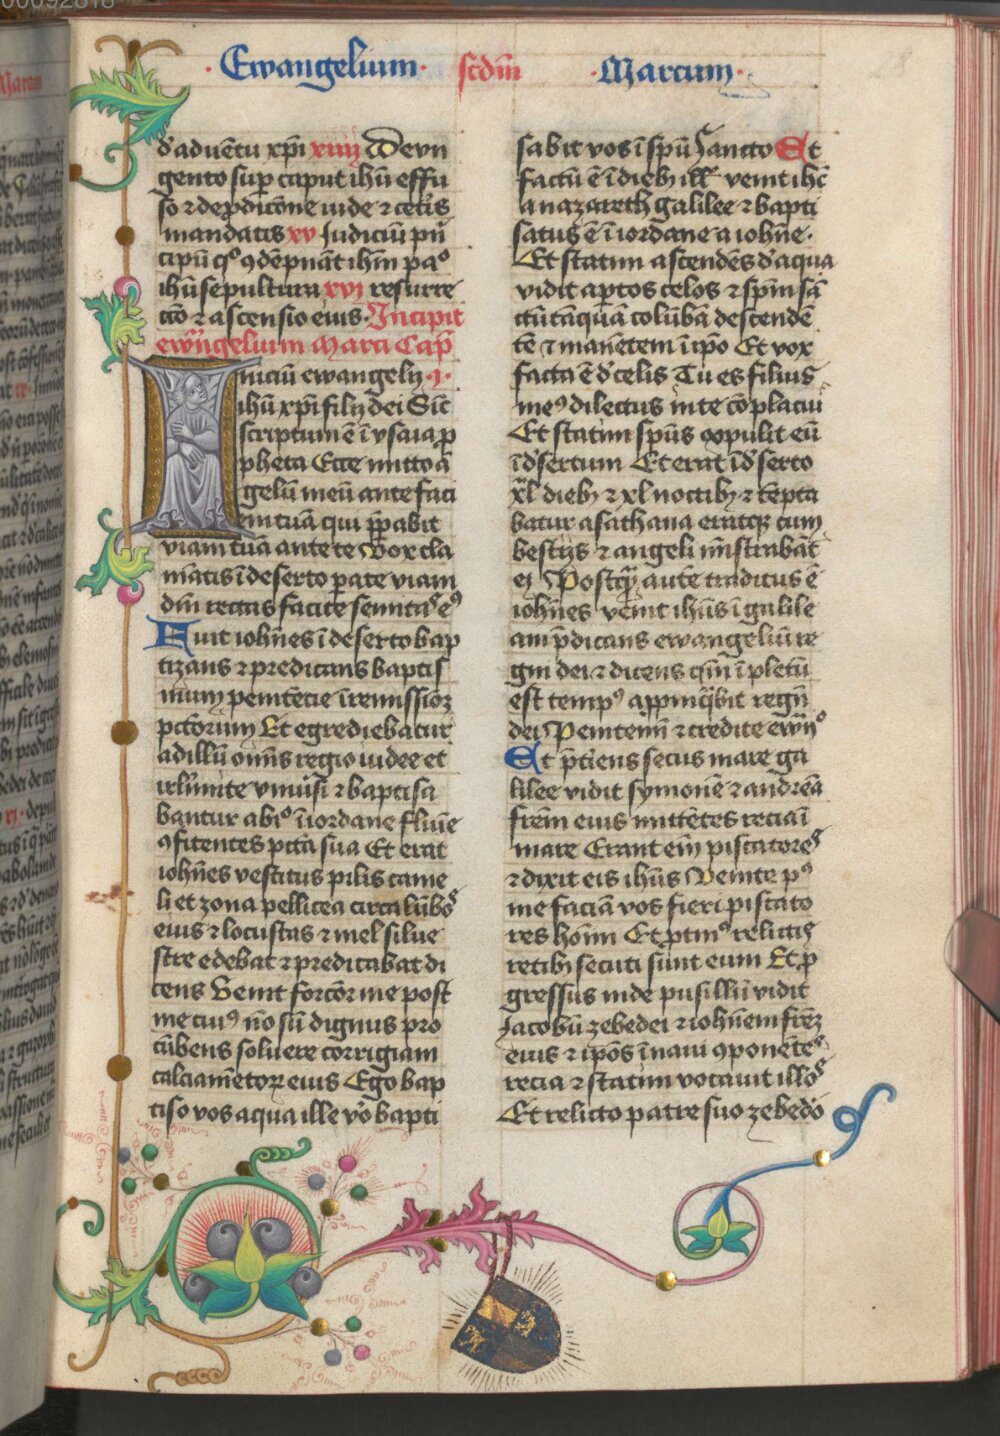 Ewangelium scdm Marcum
d'aduētu xp̄i xiiij De vn
gento sup caput ihū effu
so ⁊ de pdicōne iude ⁊ cet̄is
mandatis xv Iudiciū pn̄
cipū qͦ ꝯdēpnāt ihm̄ paͦ
ihū sepultura xvj resurre
ctō ⁊ ascensio eius Incipit
ewn̄gelium Marci Cap̄
Iniciū ewangelij .j.
ihū xp̄i filij dei Sic̄
scriptum ē ī ysaia p
pheta Ecce mitto ā
gelū meū ante faci
em tuā qui p̄pabit
viam tuā ante te Vox cla
mātis ī deserto pate viam
dn̄i rectas facite semitas eꝰ
Fuit ioh̄nes ī deserto bap
tizans ⁊ predicans baptis
mum penitēcie ī remissioꝫ
pctōrum Et egrediebatur
ad illū omīs regio iudee et
irl̄imite vniūsi ⁊ baptisa
bantur ab iͦ ī iordane fluīe
ꝯfitentes pctā sua Et erat
ioh̄nes vestitus pilis came
li et zona pellicea circa lūbos
eius ⁊ locustas ⁊ mel silue
stre edebat ⁊ predicabat di
cens Venit forcōr me post
me cuiꝰ nō sū dignus pro
cūbens soluere corrigiam
calciamētoꝝ eius Ego bap
tiso vos aqua ille vͦo bapti
sabit vos ī spū sancto Et
factū ē ī diebꝫ ill' venit ihc̄
a nazareth galilee ⁊ bapti
satus ē ī iordane a ioh̄ne
Et statim ascendēs d' aqua
vidit aptos celos ⁊ spm̄ sā
ctū tāquā colūbā descendē
tē ⁊ manētem ī ipo Et vox
facta ē d' celis Tu es filius
meꝰ dilectus in te cōplacui
Et statim spūs expulit eū
ī d'sertum Et erat ī d'serto
xl diebꝫ ⁊ xl noctibꝫ ⁊ tēpta
batur a sathana eratqꝫ cum
bestijs ⁊ angeli mīstrabāt
ei Postq̄ aute traditus ē
ioh̄nes venit ihūs ī galile
am p̄dicans ewangeliū re
gni dei ⁊ dicens qm̄ īpletū
est tempꝰ appīqͣbit regn̄
dei Penitemī ⁊ credite ewn̄ͦ
Et p̄tiens secus mare ga
lilee vidit symonē ⁊ andreā
frēm eius mittētes recia ī
mare Erant em̄ piscatores
⁊ dixit eis ihūs Venite pꝰ
me faciā vos fieri piscato
res hoīm Et ptīnꝰ relictis
retibꝫ secuti sūnt eum Et p
gressus inde pusillū vidit
Jacobū zebedei ⁊ ioh̄nem frēꝫ
eius ⁊ ip̄os ī naui ꝯponētes
recia ⁊ statim vocauit illos
Et relicto patre suo zebedō